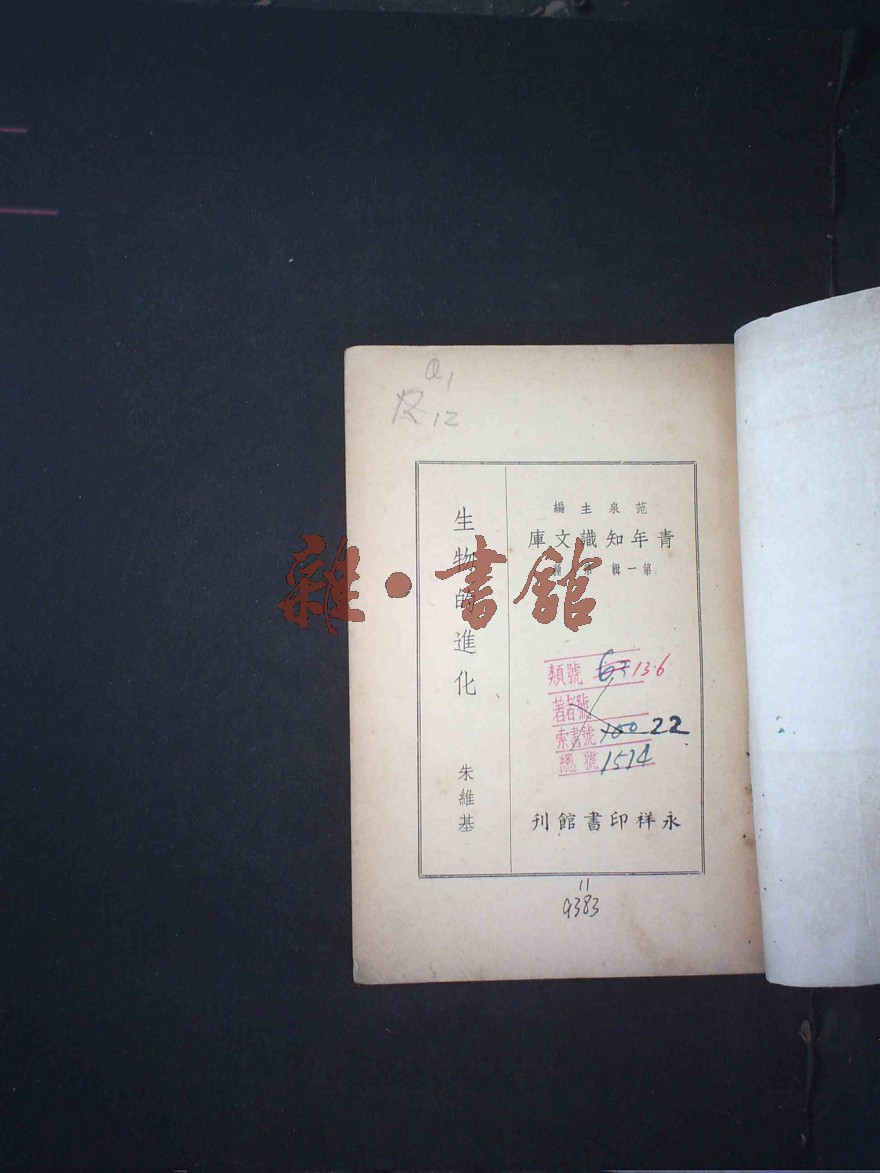 Q1
12
范泉主編
青年知識文庫
第一輯
生物的進化
朱維基
雜·書館
類號 13·6
著者號
索書號 22
總號 1574
永祥印書館刊
11
9383